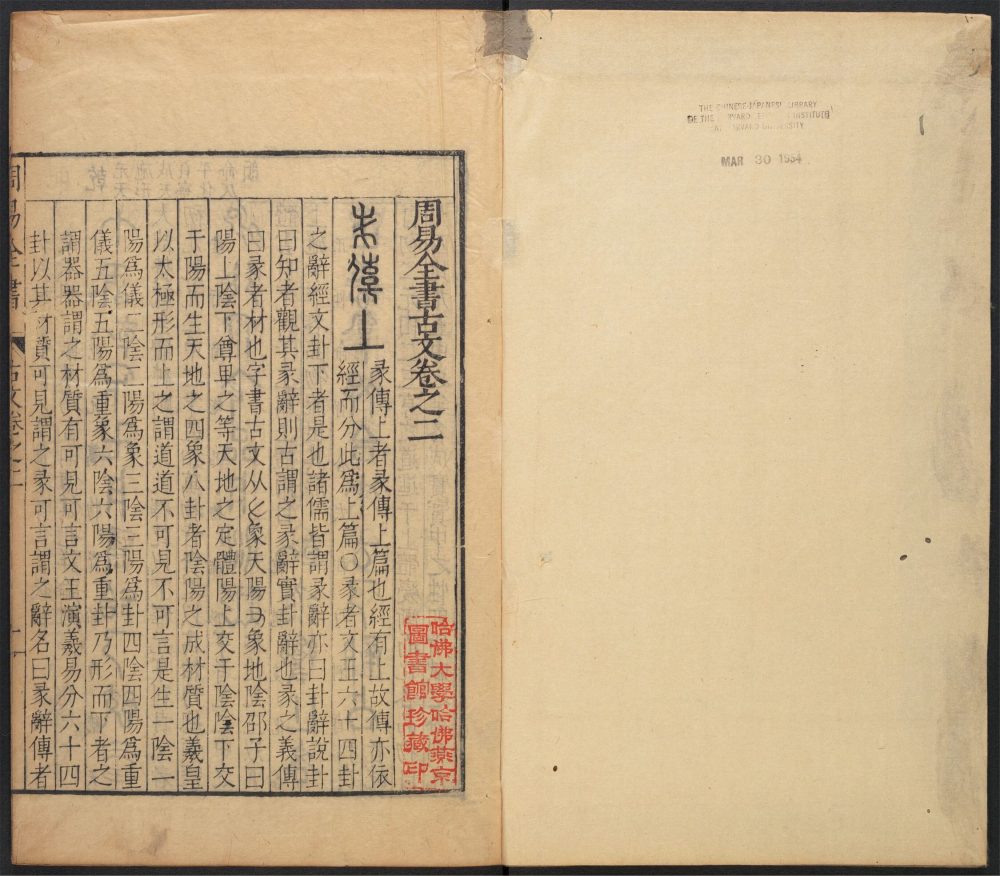 周易全書古文卷之二
彖傳上
彖傳上者彖傳上篇也經有上故傳亦依
經而分此為上篇〇彖者文王六十四卦
之辭經文卦下者是也諸儒皆謂彖辭亦曰卦辭說卦
曰知者觀其彖辭則古謂之彖辭實卦辭也彖之義傳
曰彖者材也字書古文从象天陽象地陰邵子曰
陽上陰下尊卑之等天地之定體陽上交于陰陰下交
于陽而生天地之四象八卦者陰陽之成材質也羲皇
以太極形而上之謂道道不可見不可言是生一陰一
陽為儀二陰二陽為象三陰三陽為卦四陰四陽為重
儀五陰五陽為重象六陰六陽為重卦乃形而下者之
謂器器謂之材質有可見可言文王演羲易分六十四
卦以其材質可見謂之彖可言謂之辭名曰彖辭傳者
周易全書 古文卷之二 一
哈佛大學哈佛燕京
圖書館珍藏印
THE CHINESE-JAPANESE LIBRARY
OF THE HARVARD INSTITUTE
AT HARVARD UNIVERSITY
MAR 30 1954